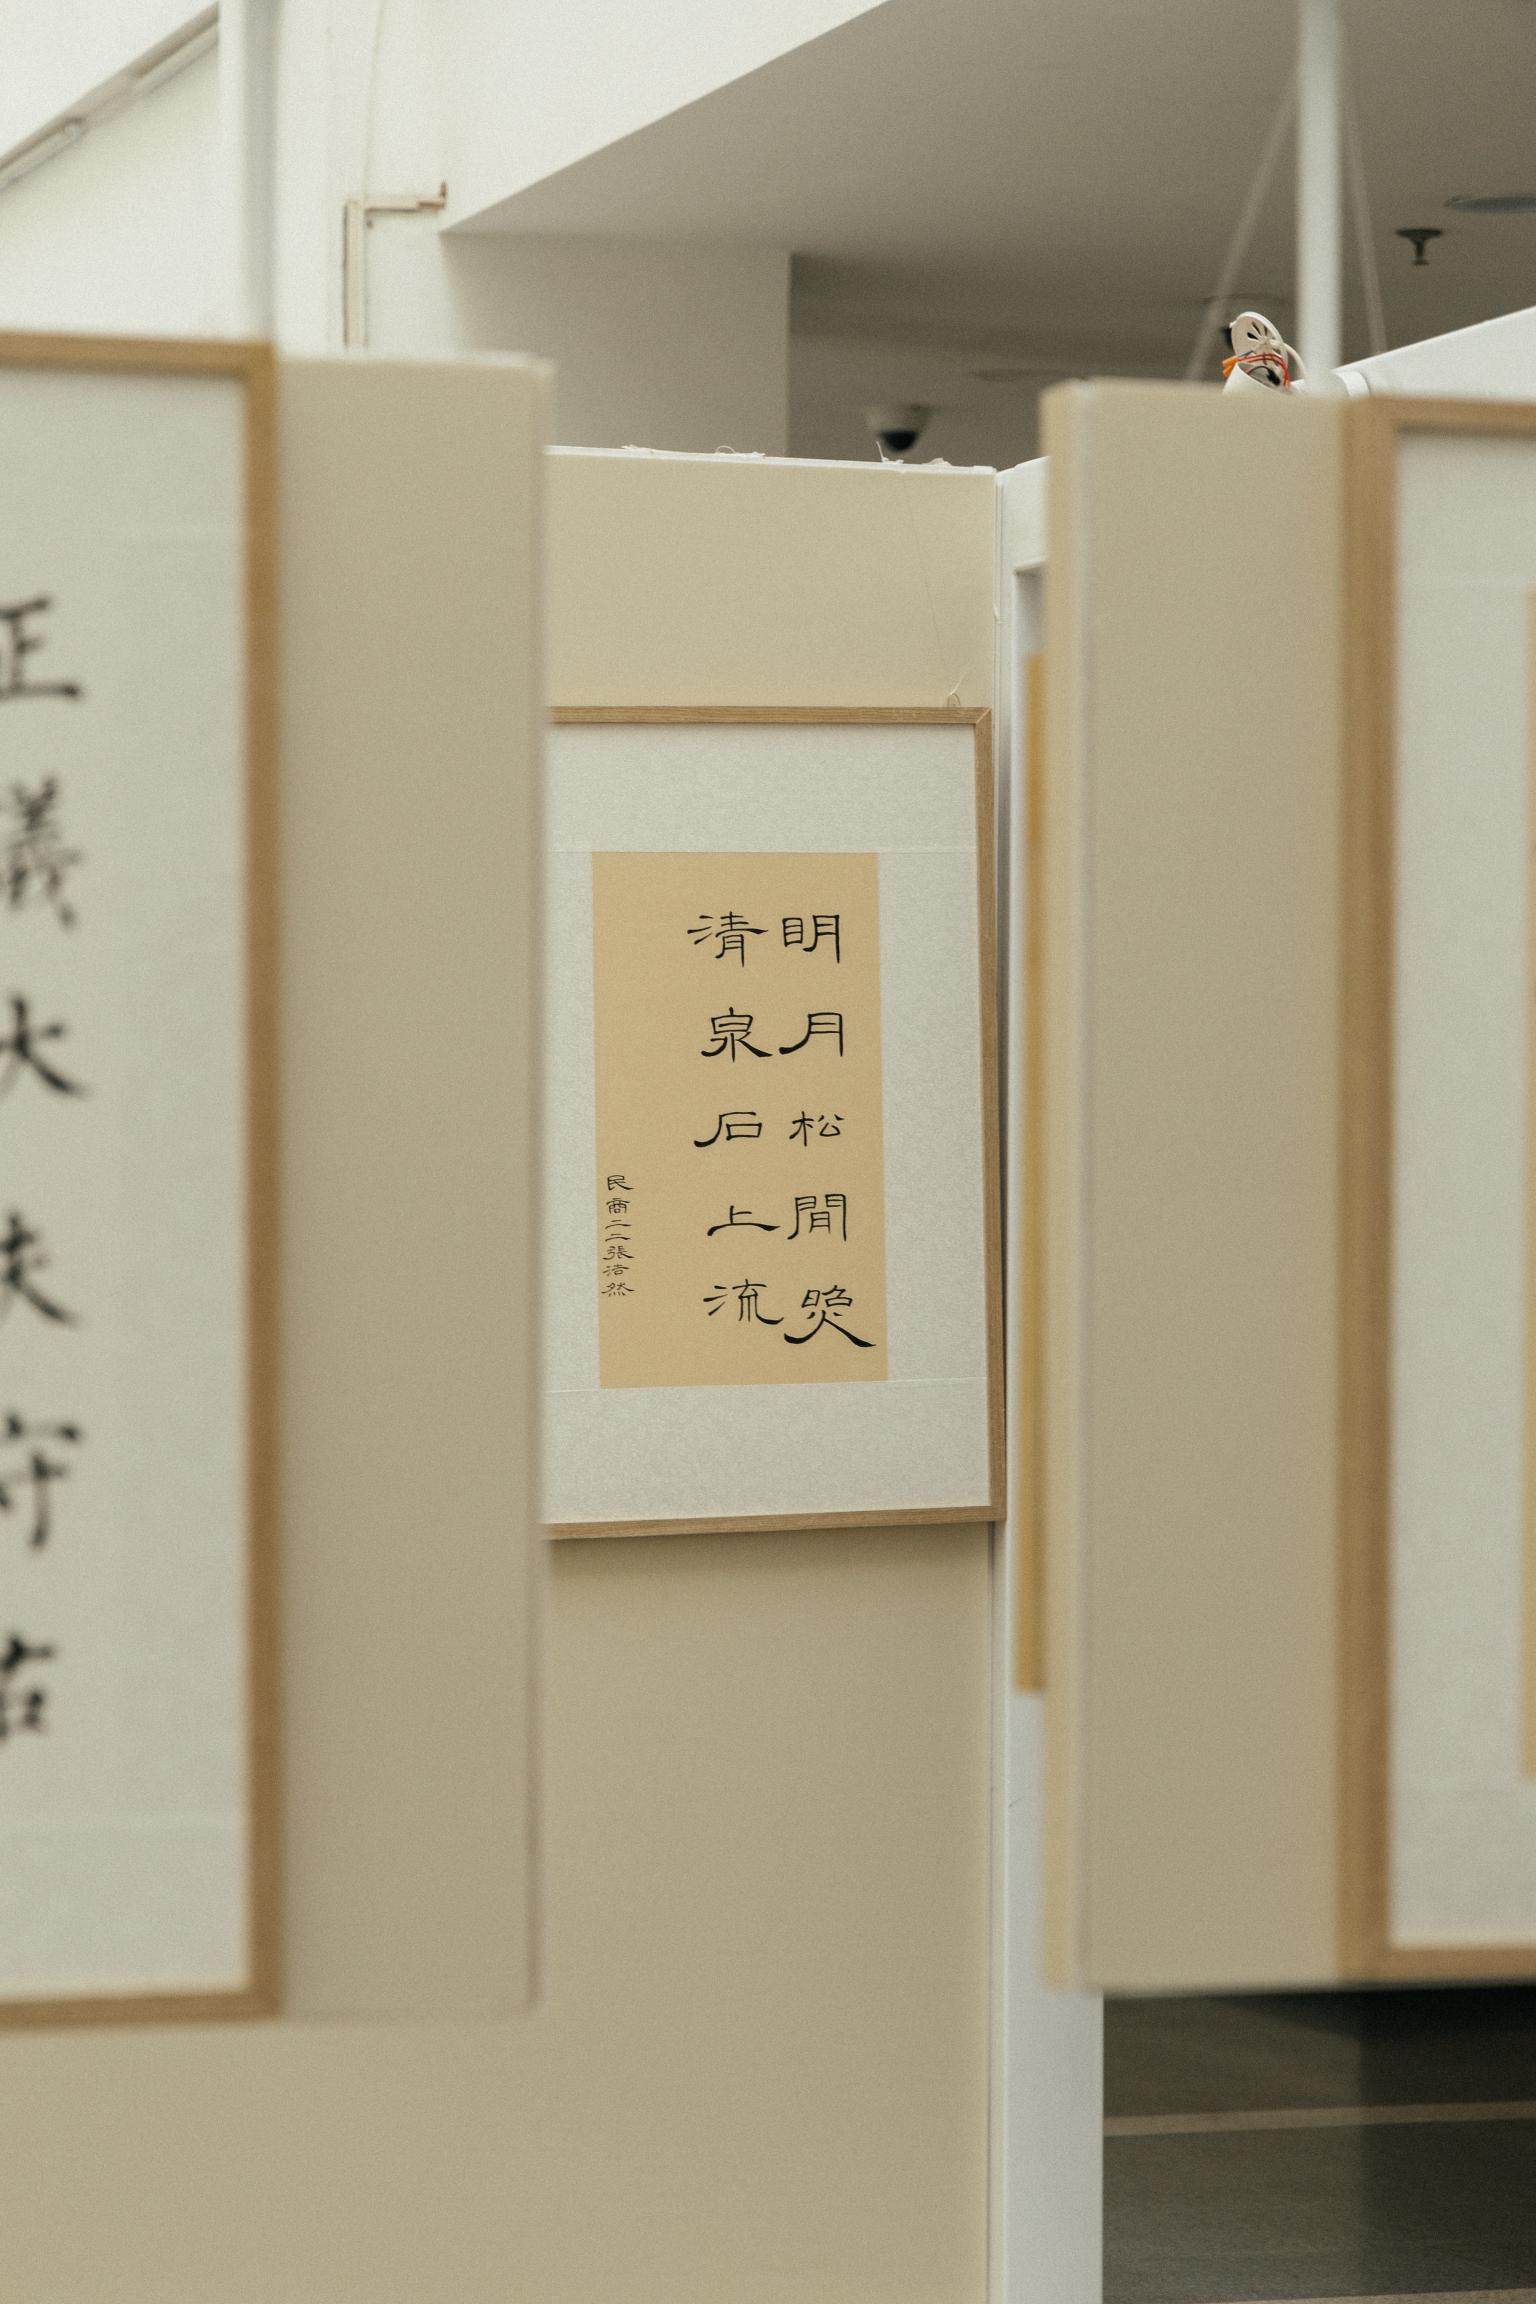 明月松間照
清泉石上流
民商二二張浩然
正義大守